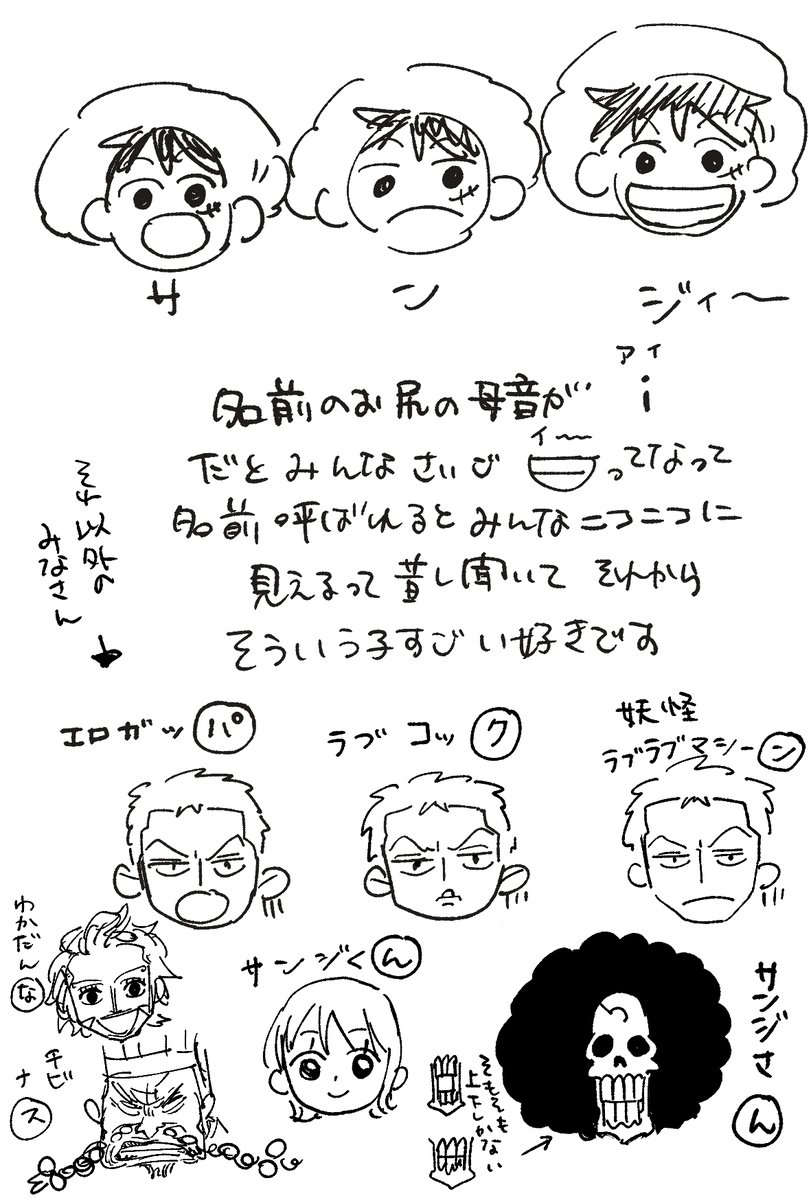 サ ン ジィ〜
アイ
名前のお尻の母音が i
イ〜
だとみんなさいご ってなって
名前呼ばれるとみんなニコニコに
見えるって昔し聞いて それから
そういう子すごい好きです
それ以外の
みなさん
エロガッパ
ラブコック
妖怪
ラブラブマシーン
わかだんな
チビ
ナス
サンジくん
サンジさん
そもそも
上下しかない